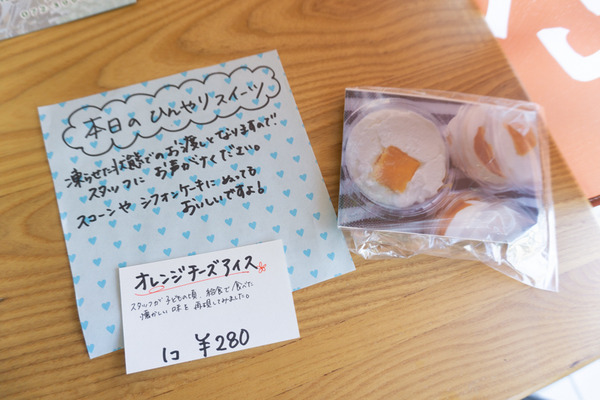 本日のひんやりスイーツ
凍らせた状態でのお渡しとなりますので
スタッフに お声がけください。
スコーンや シフォンケーキに ぬっても
おいしいですよ!
オレンジチーズアイス
スタッフが子どもの頃、給食で食べた
懐かしい味を再現してみました。
1コ ¥280